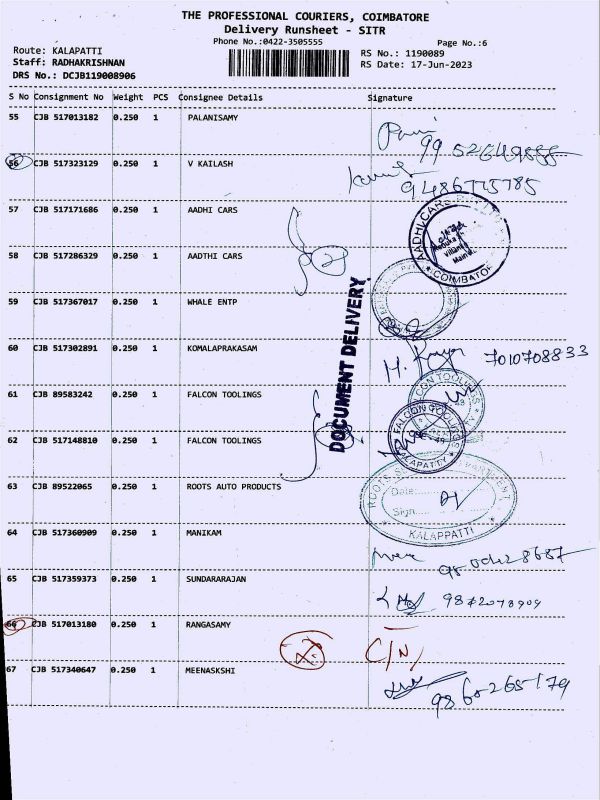 THE PROFESSIONAL COURIERS, COIMBATORE
Delivery Runsheet - SITR
Phone No.:0422-3505555
Page No.:6
Route: KALAPATTI
RS No.: 1190089
Staff: RADHAKRISHNAN
RS Date: 17-Jun-2023
DRS No.: DCJB119008906
S No Consignment No Weight PCS Consignee Details Signature
55 CJB 517013182 0.250 1 PALANISAMY
56 CJB 517323129 0.250 1 V KAILASH
9486775785
57 CJB 517171686 0.250 1 AADHI CARS
AADHI CARS
COIMBATORE
58 CJB 517286329 0.250 1 AADTHI CARS
59 CJB 517367017 0.250 1 WHALE ENTP
DOCUMENT DELIVERY
60 CJB 517302891 0.250 1 KOMALAPRAKASAM
7010708833
61 CJB 89583242 0.250 1 FALCON TOOLINGS
62 CJB 517148810 0.250 1 FALCON TOOLINGS
FALCON TOOLINGS
KALAPATTY
63 CJB 89522065 0.250 1 ROOTS AUTO PRODUCTS
ROOTS
Date:
Sign
KALAPPATTI
64 CJB 517360909 0.250 1 MANIKAM
65 CJB 517359373 0.250 1 SUNDARARAJAN
66 CJB 517013180 0.250 1 RANGASAMY
C/N
67 CJB 517340647 0.250 1 MEENASKSHI